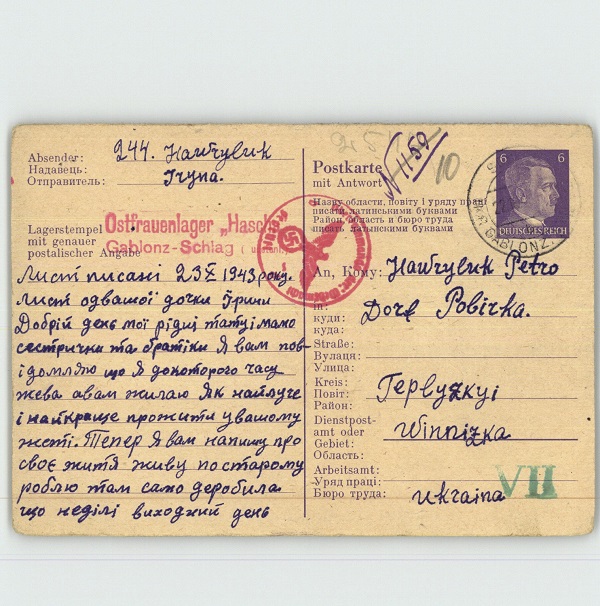 Absender:
Надавець:
Отправитель:
244. Наитрувик
Ігупа.
Lagerstempel
mit genauer
postalischer Angabe
Ostfrauenlager „Hasch
Gablonz-Schlag
Лист писані 23 X 1943 року.
Лист одвашої дочки Ірини
Добрій день мої рідні татці мамо
сестрички та братіки Я вам пов-
ідомляю що Я докоторого часу
жева авам жилаю Як найлуче
і найкраще прожити увашому
жєті. Тепер Я вам напишу про
своє житя живу по старому
роблю там само деробила
що неділі виходний день
Postkarte
mit Antwort
N 1150
10
Назву области, повіту і уряду праці
писати латинськими буквами
Район, область и бюро труда
писать латинскими буквами
6 6
DEUTSCHES REICH
GABLONZ
An, Кому:
Petro
in:
куди:
куда:
Dorf Pobirka.
Straße:
Вулаця:
Улица:
Kreis:
Повіт:
Район:
Dienstpost-
amt oder
Gebiet:
Область:
Winnizka
Arbeitsamt:
Уряд праці:
Бюро труда:
Ukraina
VII